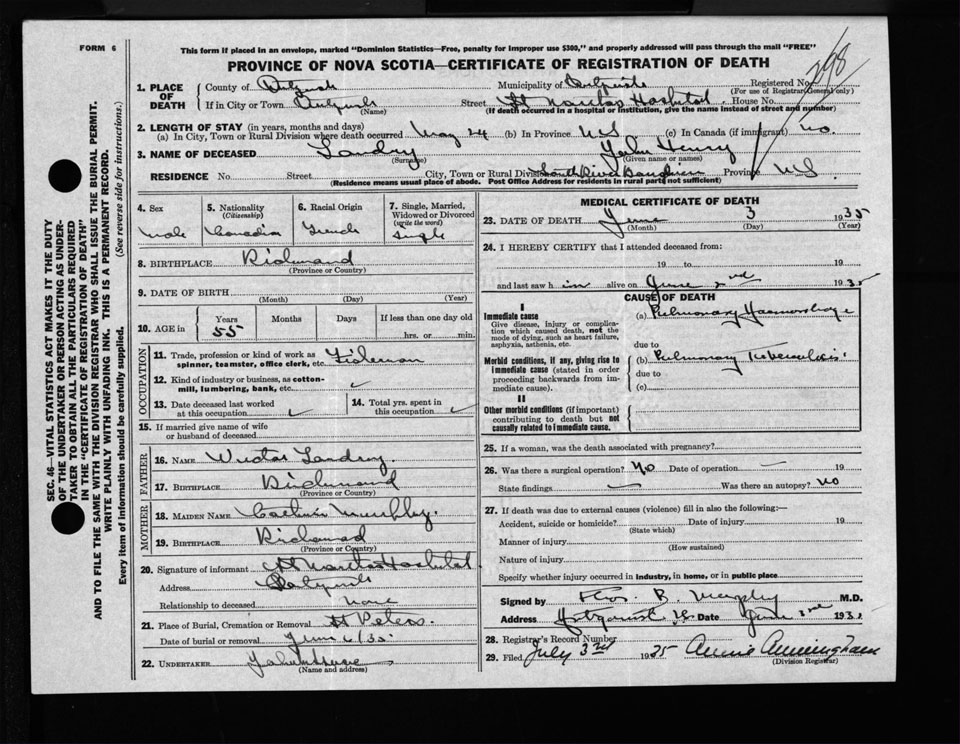 FORM 6
This form if placed in an envelope, marked "Dominion Statistics—Free, penalty for improper use $300," and properly addressed will pass through the mail "FREE"
PROVINCE OF NOVA SCOTIA—CERTIFICATE OF REGISTRATION OF DEATH
SEC. 46—VITAL STATISTICS ACT MAKES IT THE DUTY
OF THE UNDERTAKER OR PERSON ACTING AS UNDER-
TAKER TO OBTAIN ALL THE PARTICULARS REQUIRED
IN THE "CERTIFICATE OF REGISTRATION OF DEATH"
AND TO FILE THE SAME WITH THE DIVISION REGISTRAR WHO SHALL ISSUE THE BURIAL PERMIT.
WRITE PLAINLY WITH UNFADING INK. THIS IS A PERMANENT RECORD.
Every item of information should be carefully supplied. (See reverse side for instructions.)
1. PLACE OF DEATH
County of Municipality of Registered No. 298
(For use of Registrar General only)
If in City or Town Street St Marthas Hospital House No.
(Name) (If death occurred in a hospital or institution, give the name instead of street and number)
2. LENGTH OF STAY (in years, months and days)
(a) In City, Town or Rural Division where death occurred May 24 (b) In Province NS (c) In Canada (if immigrant) no.
3. NAME OF DECEASED Landry John Henry
(Surname) (Given name or names)
RESIDENCE No. Street City, Town or Rural Division South River Province NS.
(Residence means usual place of abode. Post Office Address for residents in rural parts not sufficient)
4. Sex Male
5. Nationality (Citizenship) Canadian
6. Racial Origin French
7. Single, Married, Widowed or Divorced (write the word) Single
8. BIRTHPLACE Richmond
(Province or Country)
9. DATE OF BIRTH
(Month) (Day) (Year)
10. AGE in Years 55 Months Days If less than one day old
hrs. or min.
OCCUPATION
11. Trade, profession or kind of work as spinner, teamster, office clerk, etc. Fisherman
12. Kind of industry or business, as cotton-mill, lumbering, bank, etc. ✓
13. Date deceased last worked at this occupation ✓
14. Total yrs. spent in this occupation ✓
15. If married give name of wife or husband of deceased
FATHER
16. NAME Victor Landry.
17. BIRTHPLACE Richmond
(Province or Country)
MOTHER
18. MAIDEN NAME Murphy.
19. BIRTHPLACE Richmond
(Province or Country)
20. Signature of informant St Marthas Hospital
Address
Relationship to deceased None
21. Place of Burial, Cremation or Removal St Peters.
Date of burial or removal June 6/35.
22. UNDERTAKER
(Name and address)
MEDICAL CERTIFICATE OF DEATH
23. DATE OF DEATH June 3 1935
(Month) (Day) (Year)
24. I HEREBY CERTIFY that I attended deceased from:
19 to 19
and last saw him alive on June 2nd 1935
CAUSE OF DEATH
I
Immediate cause
Give disease, injury or complication which caused death, not the mode of dying, such as heart failure, asphyxia, asthenia, etc.
(a) Pulmonary Haemorrhage
due to
Morbid conditions, if any, giving rise to immediate cause (stated in order proceeding backwards from immediate cause).
(b) Pulmonary Tuberculosis.
due to
(c)
II
Other morbid conditions (if important) contributing to death but not causally related to immediate cause.
25. If a woman, was the death associated with pregnancy?
26. Was there a surgical operation? No Date of operation — 19
State findings — Was there an autopsy? No
27. If death was due to external causes (violence) fill in also the following:—
Accident, suicide or homicide? Date of injury 19
(State which)
Manner of injury
(How sustained)
Nature of injury
Specify whether injury occurred in industry, in home, or in public place
Signed by B. Murphy M.D.
Address Antigonish NS Date June
28. Registrar's Record Number
29. Filed July 3rd 1935 Annie Cunningham
(Division Registrar)